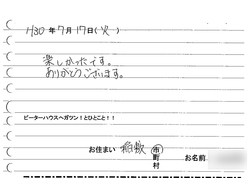 H30年7月17日(火)
楽しかったです。
ありがとうございます。
ピーターハウスへガツン!とひとこと!!
お住まい 稲敷 市
町
村 お名前